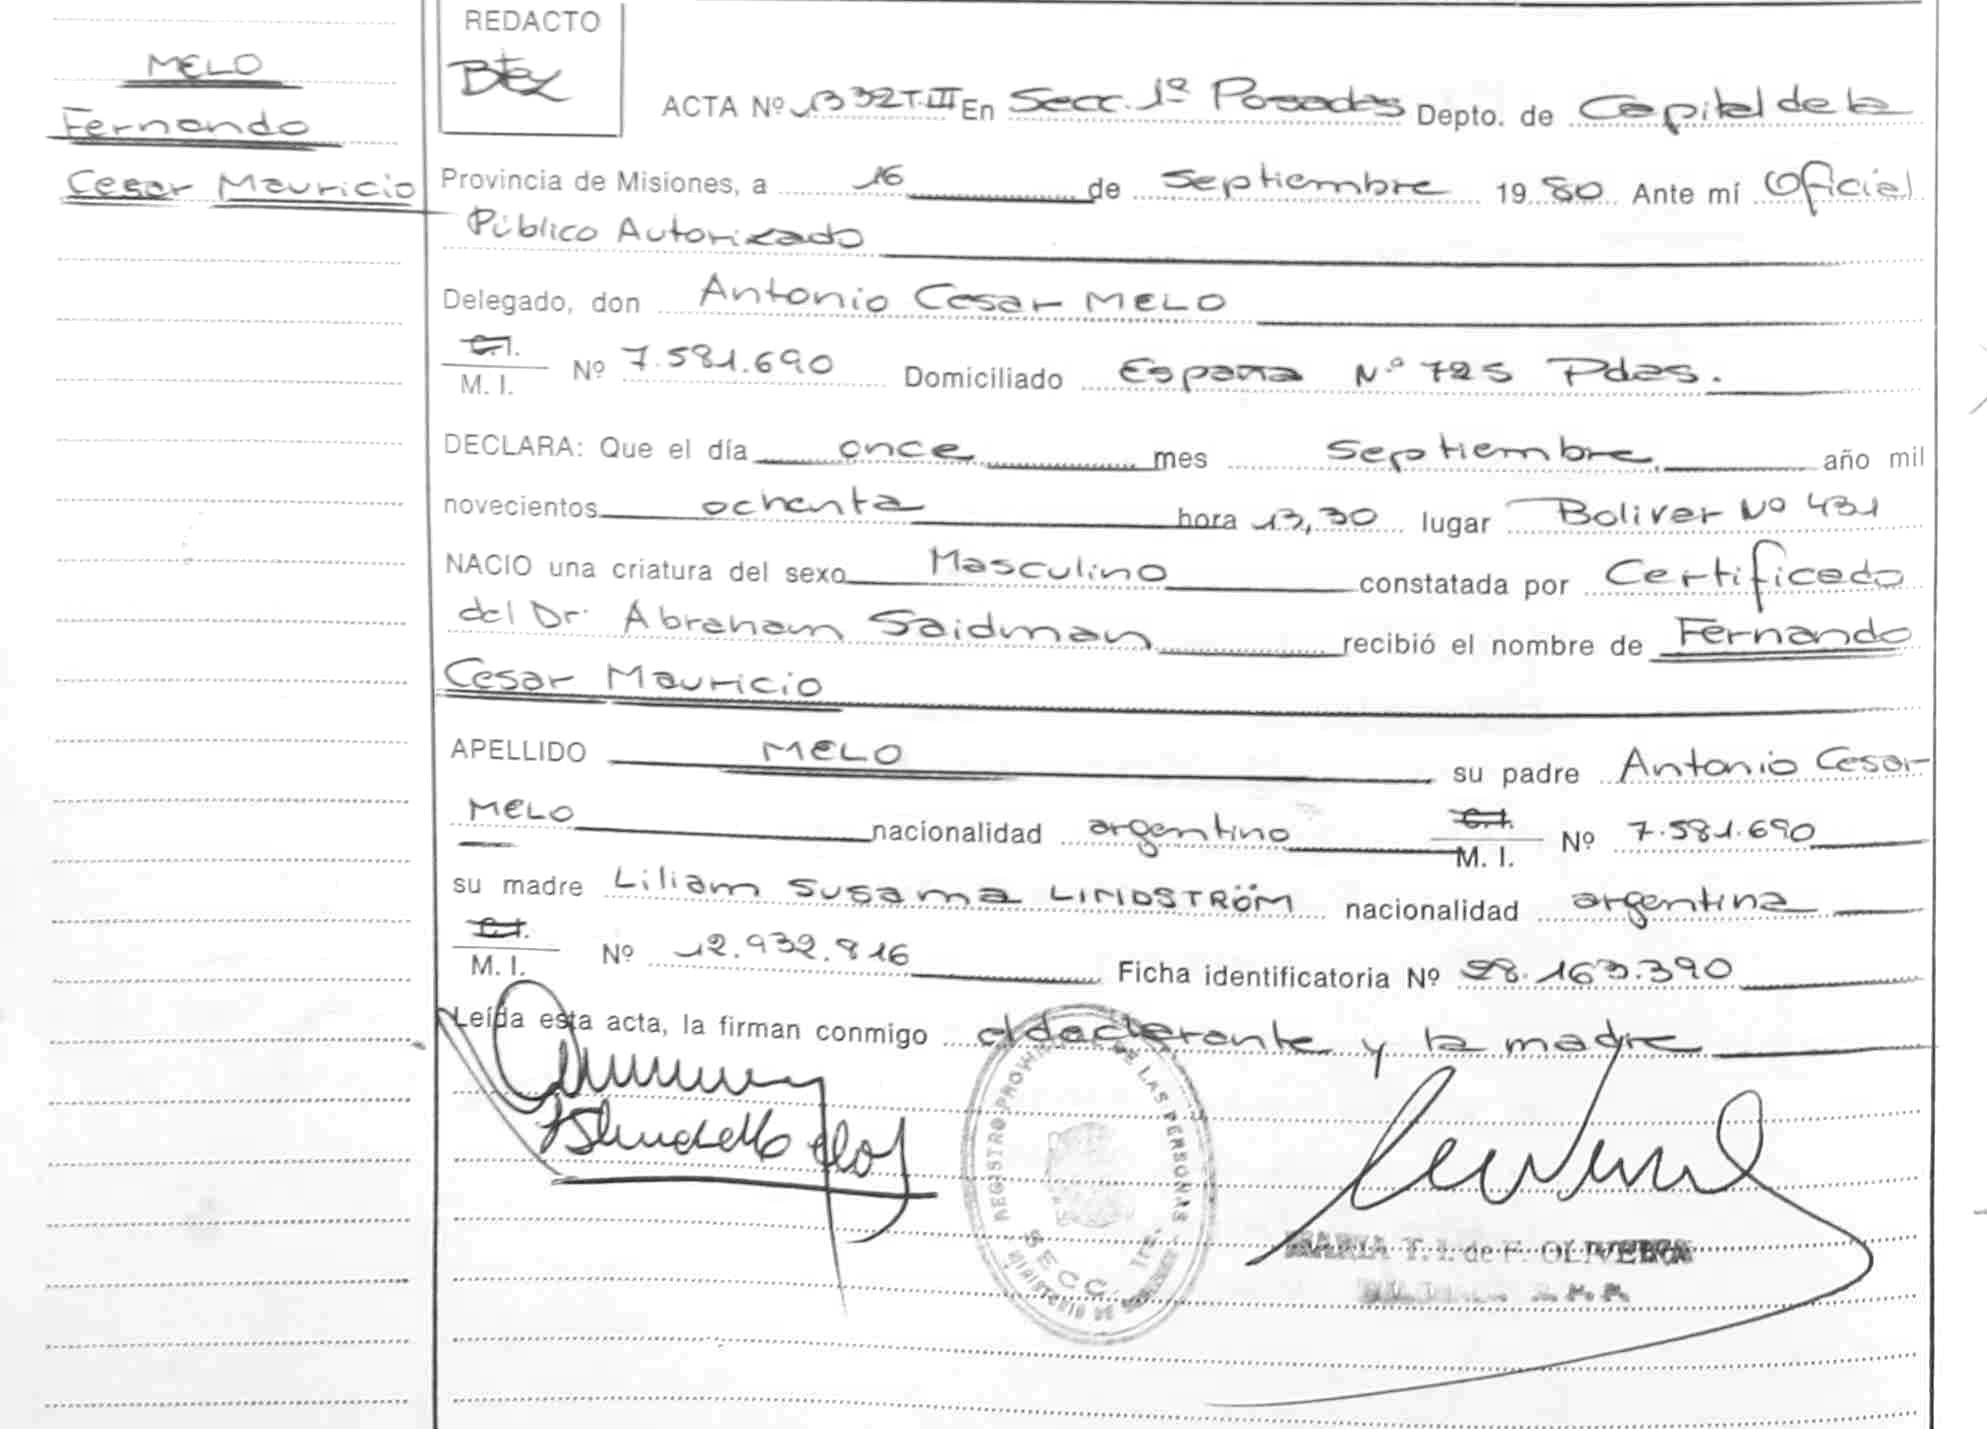 REDACTO
MELO
Fernando
Cesar Mauricio
ACTA Nº 1332 T.III En Secc. 1º Posadas Depto. de Capital de la
Provincia de Misiones, a 16 de septiembre 1980 Ante mí Oficial
Público Autorizado
Delegado, don Antonio Cesar MELO
C.I.
M. I. Nº 7.581.690 Domiciliado España Nº 725 Pdas.
DECLARA: Que el día once mes septiembre año mil
novecientos ochenta hora 13,30 lugar Bolivar Nº 431
NACIO una criatura del sexo Masculino constatada por Certificado
del Dr. Abraham Saidman recibió el nombre de Fernando
Cesar Mauricio
APELLIDO MELO su padre Antonio Cesar
MELO nacionalidad argentino C.I. M. I. Nº 7.581.690
su madre Liliam Susana LINDSTRÖM nacionalidad argentina
C.I.
M. I. Nº 12.932.816 Ficha identificatoria Nº 28.163.390
Leída esta acta, la firman conmigo el declarante y la madre
REGISTRO DE LAS PERSONAS
SECC. 1ra.
MINISTERIO DE
MARIA T. I. de F. OLIVEIRA